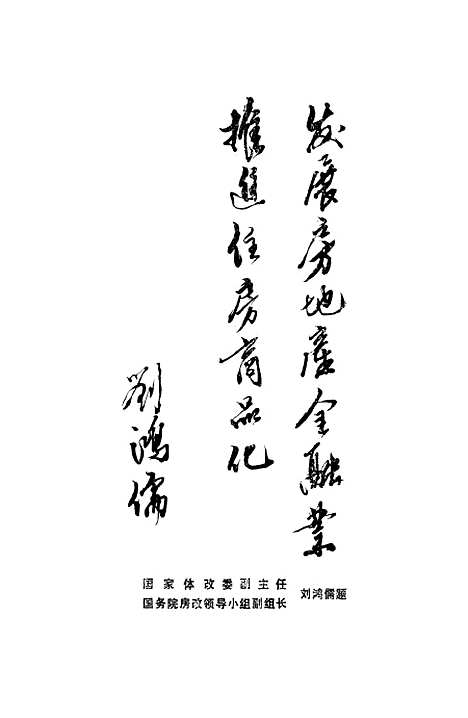 发展房地產金融業
推進住房商品化
劉鴻儒
国家体改委副主任
国务院房改领导小组副组长
刘鸿儒题